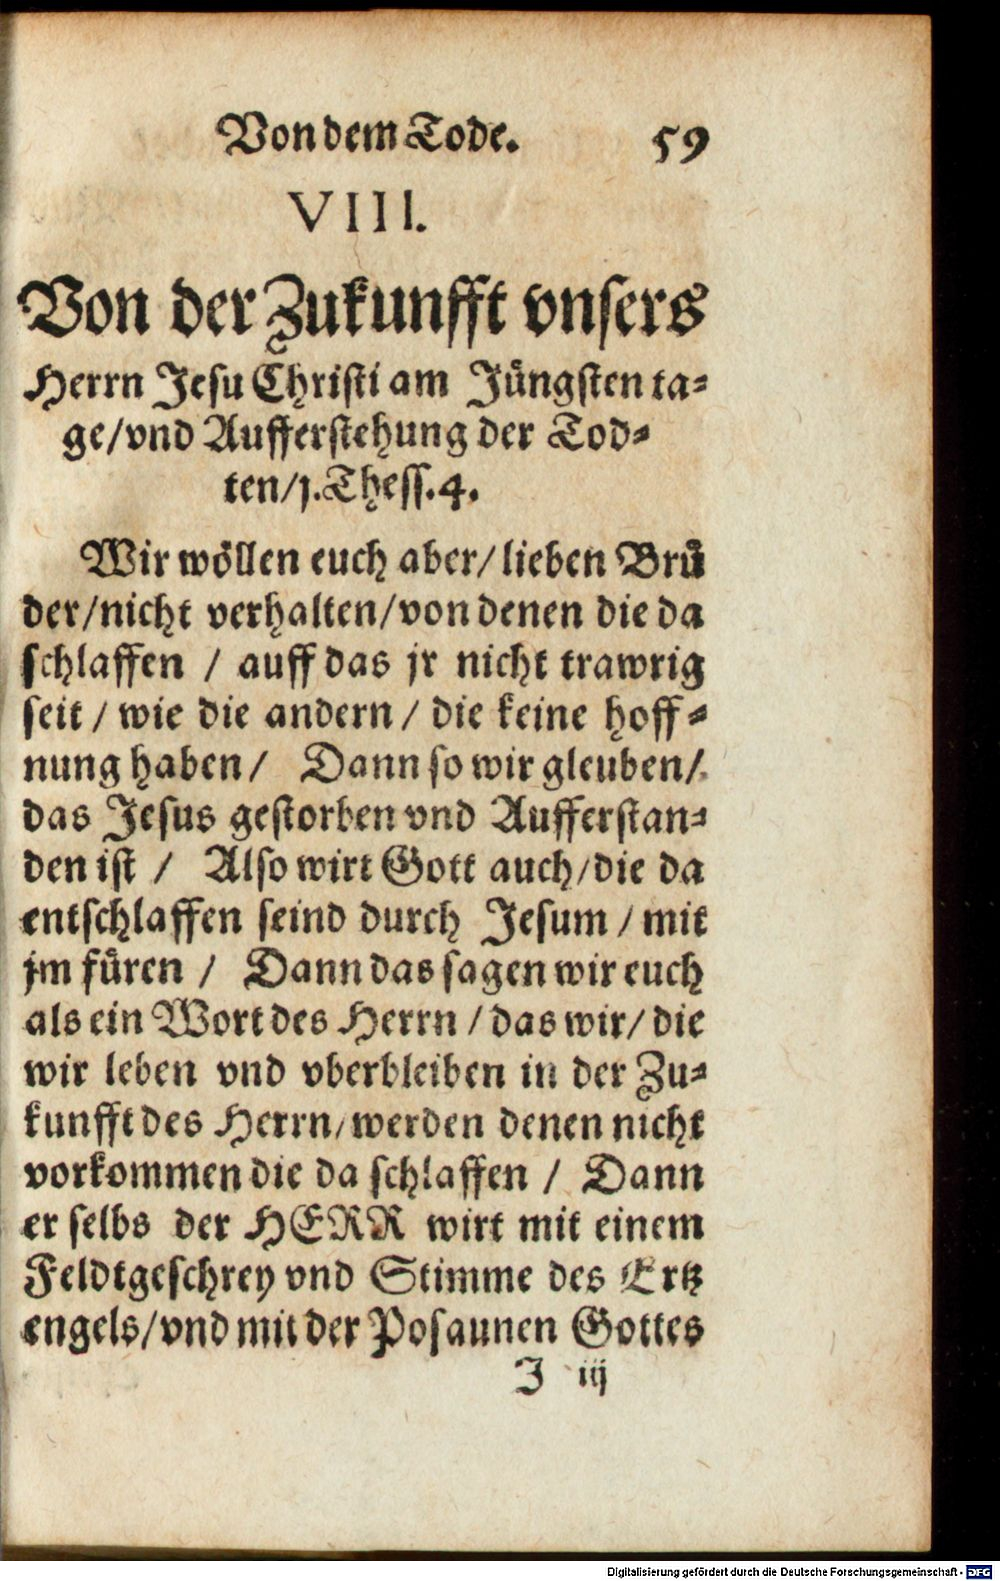 Von dem Tode. 59
VIII.
Von der Zukunfft vnsers
Herrn Jesu Christi am Jüngsten ta⸗
ge/vnd Aufferstehung der Tod⸗
ten/1.Thess.4.
Wir wöllen euch aber/lieben Brů
der/nicht verhalten/von denen die da
schlaffen / auff das jr nicht trawrig
seit / wie die andern / die keine hoff⸗
nung haben / Dann so wir gleuben/
das Jesus gestorben vnd Aufferstan⸗
den ist / Also wirt Gott auch/die da
entschlaffen seind durch Jesum / mit
jm füren / Dann das sagen wir euch
als ein Wort des Herrn / das wir/ die
wir leben vnd vberbleiben in der Zu⸗
kunfft des Herrn/werden denen nicht
vorkommen die da schlaffen / Dann
er selbs der HERR wirt mit einem
Feldtgeschrey vnd Stimme des Ertz
engels/vnd mit der Posaunen Gottes
J iij
Digitalisierung gefördert durch die Deutsche Forschungsgemeinschaft - DFG